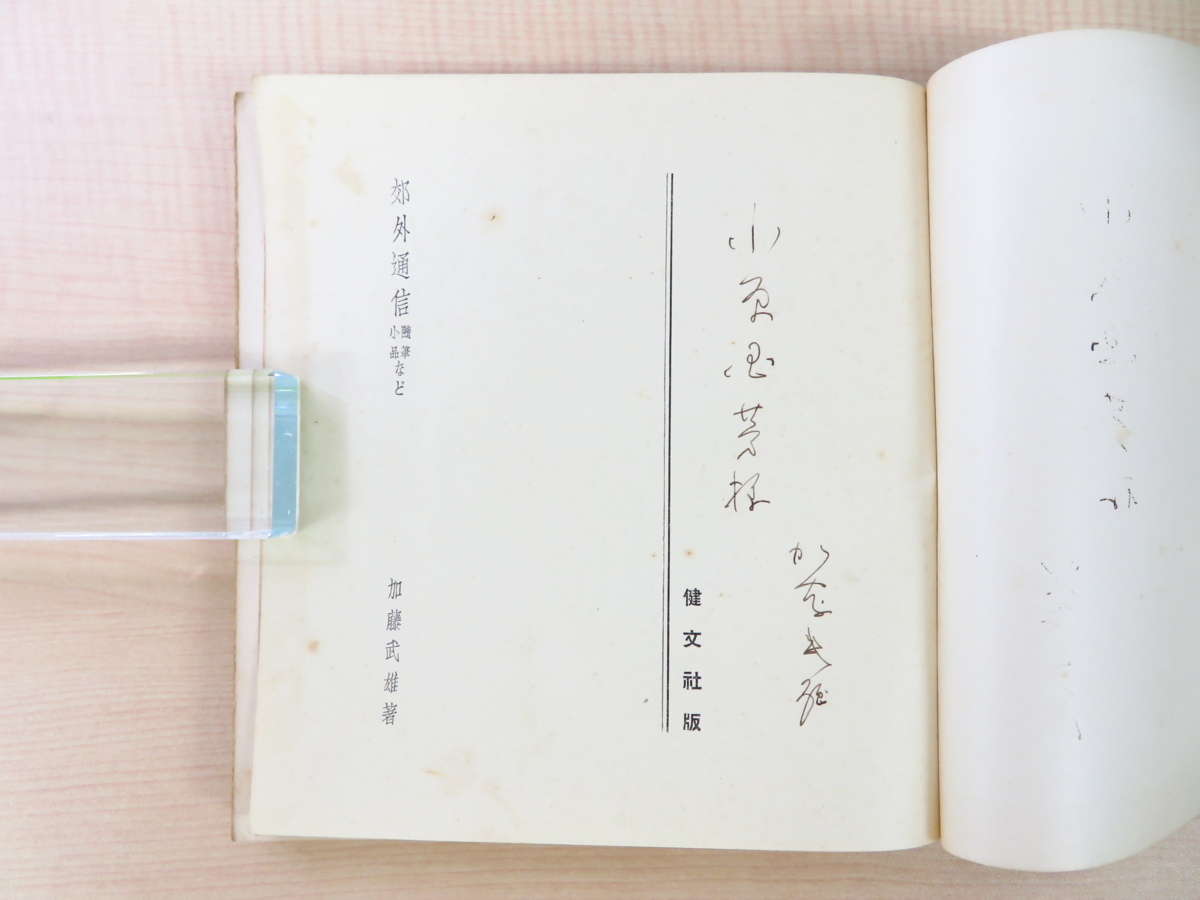 小原國芳様
加藤武雄
健文社版
郊外通信 随筆小品など
加藤武雄著